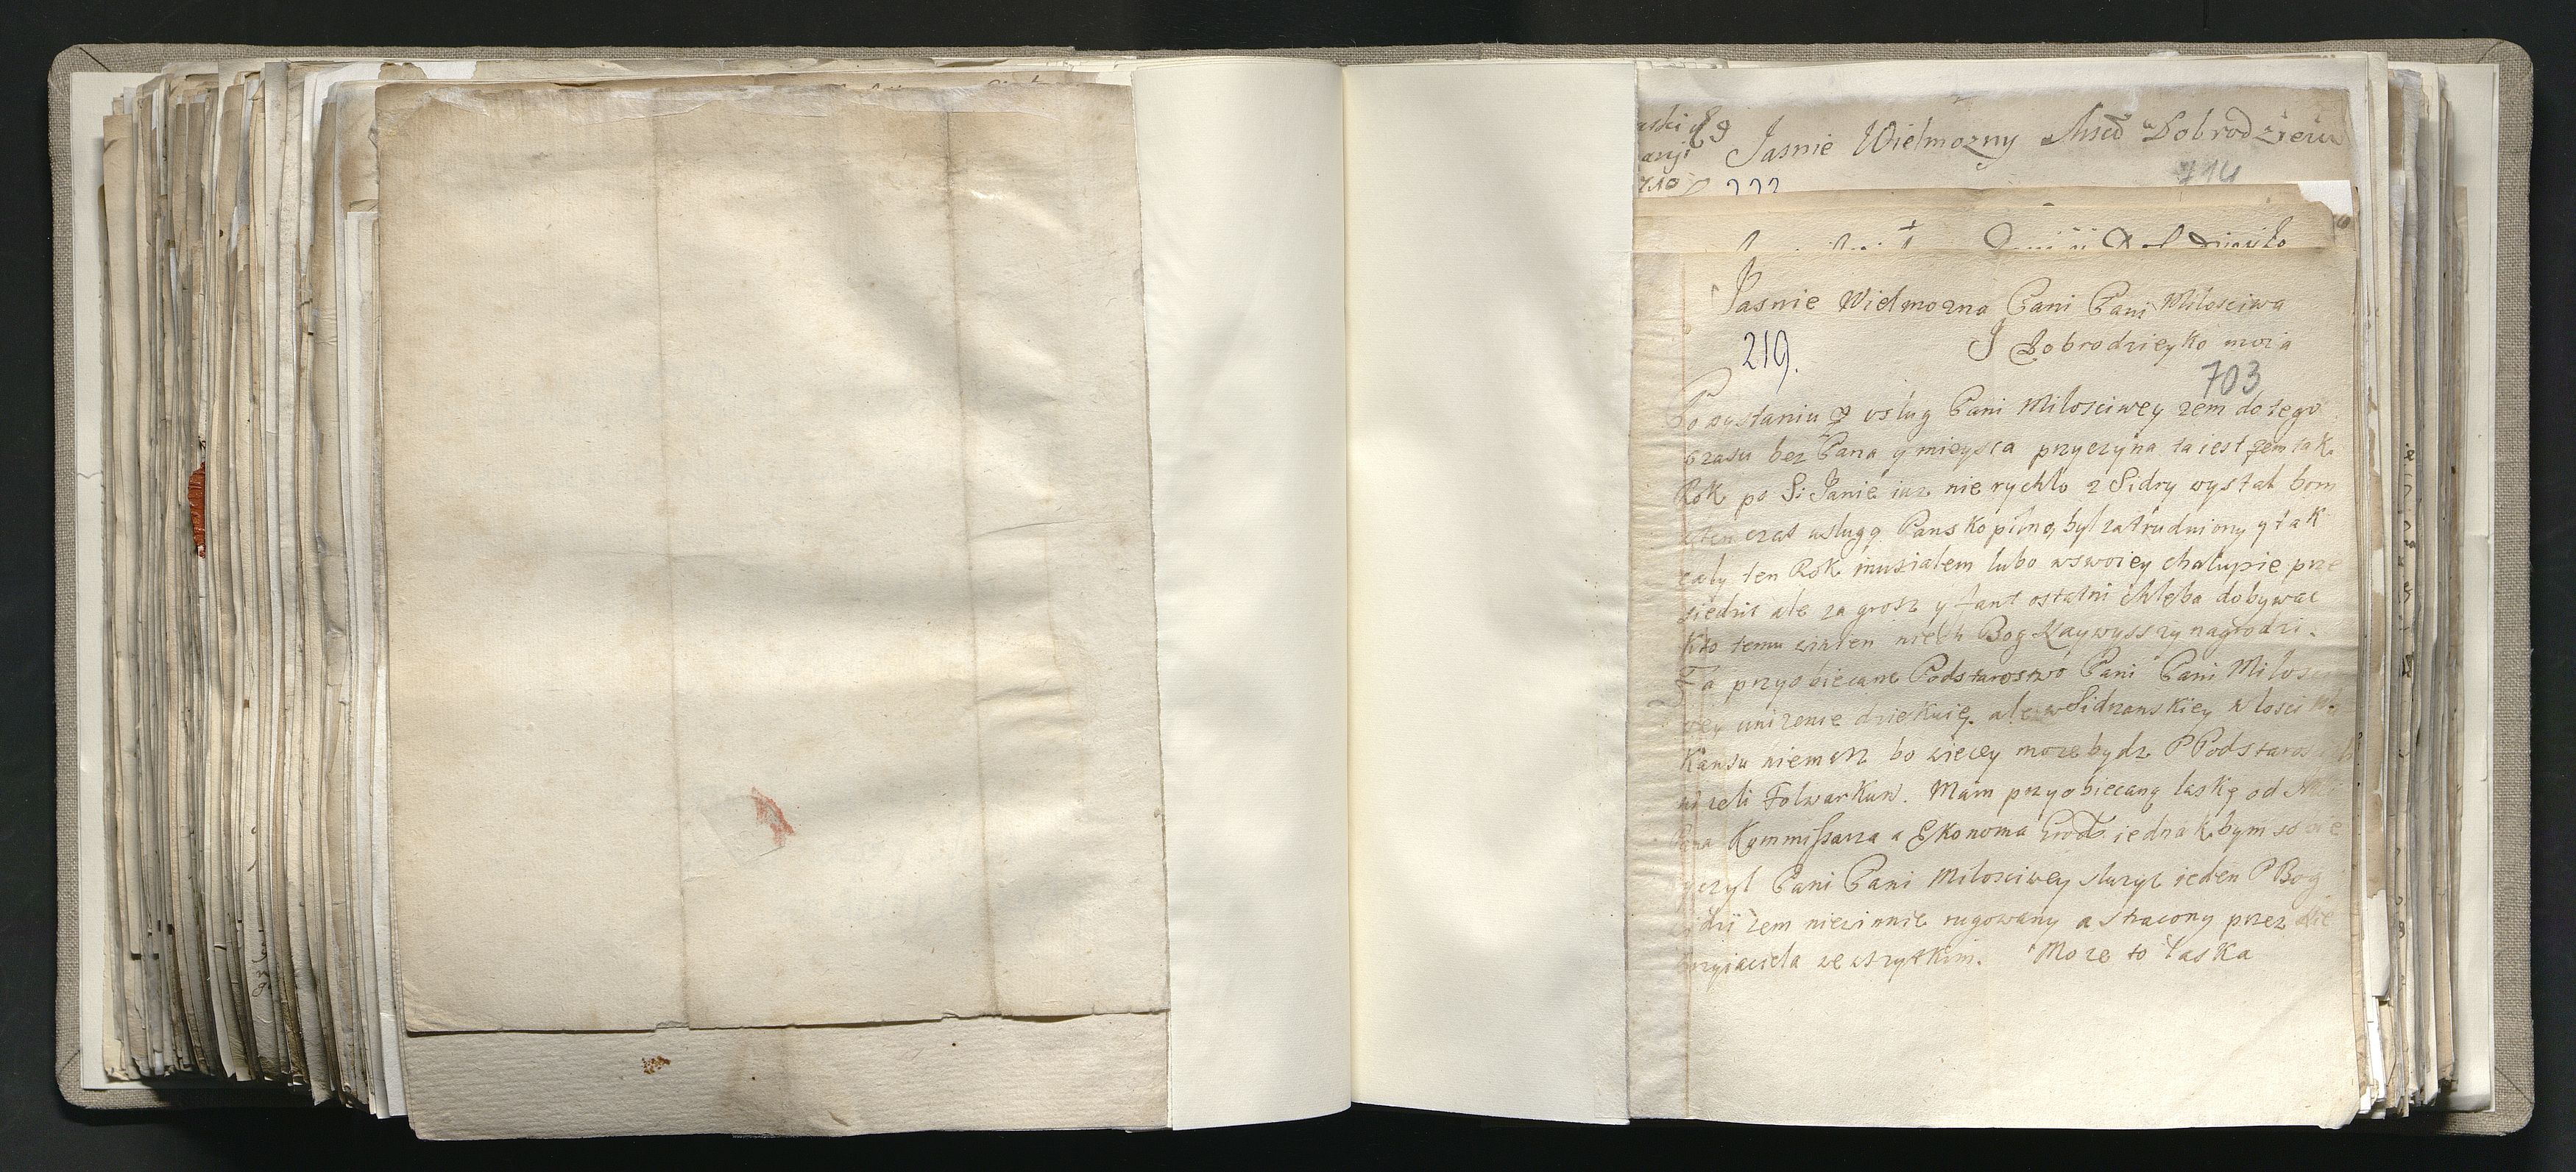 Jasnie Wielmozny Mscĩ Dobrodzieiu
714
Jasnie Wielmozna Pani Pani Milosciwa
219.
J Dobrodzieyko moia
703
Po wystaniu z uslug Pani Milosciwey zem do tego
czasu bez Pana y mieysca przyczyna ta iest zem tak
Rok po S: Janie iuz nie rychlo z Sidry wystal bom
ten czas uslugą Panską pilną byl zatrudniony y tak
caly ten Rok musialem lubo w swoiey chalupie prze
siedzic ale za grosz y fant ostatni chleba dobywac
Kto temu winien niech Bog Naywysszy nagrodzi.
Za przyobiecane Podstarostwo Pani Pani Milosci
wey unizenie dziekuię. ale w Sidrzanskiey wlosci Wa
kansu niemasz bo wiecey moze bydz P Podstaros
nizeli Folwarkuw. Mam przyobiecaną laskę od
Pana Kommissarza a Ekonoma Grod: iednak bym sobie
zyczyl Pani Pani Milosciwey sluzyc ieden P Bog
widzi zem niewinnie rugowany a stracony przez Nie
przyiaciela ze wszytkim. Moze to laska